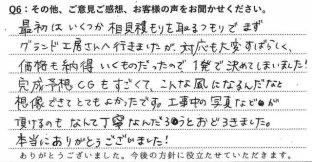 Q6：その他、ご意見ご感想、お客様の声をお聞かせください。
最初は いくつか 相見積もりを取るつもりで まず
グランド工房さんへ行きましたが、対応も大変すばらしく、
価格も納得 いくものだったので 1発で決めてしまいました!
完成予想CGもすごくて、こんな風になるんだなと
想像できてとてもよかったです。工事中の写真などが
頂けるのも なんて丁寧なんだろうとおどろきました。
本当にありがとうございました!
ありがとうございました。今後の方針に役立たせていただきます。